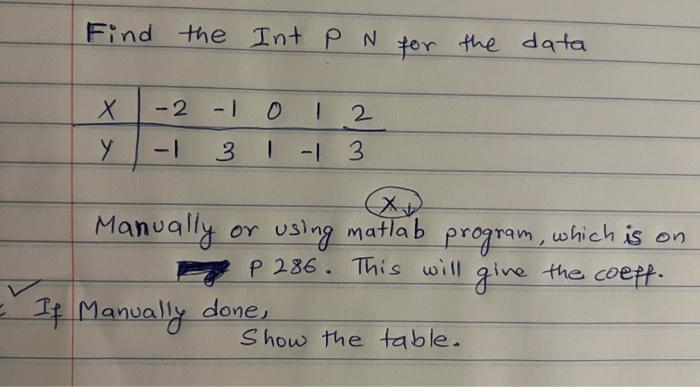 Find the Int P N for the data
X | -2 -1 0 1 2
Y | -1 3 1 -1 3
X↓
Manually or using matlab program, which is on
P 286. This will give the coeff.
✓ If Manually done,
Show the table.